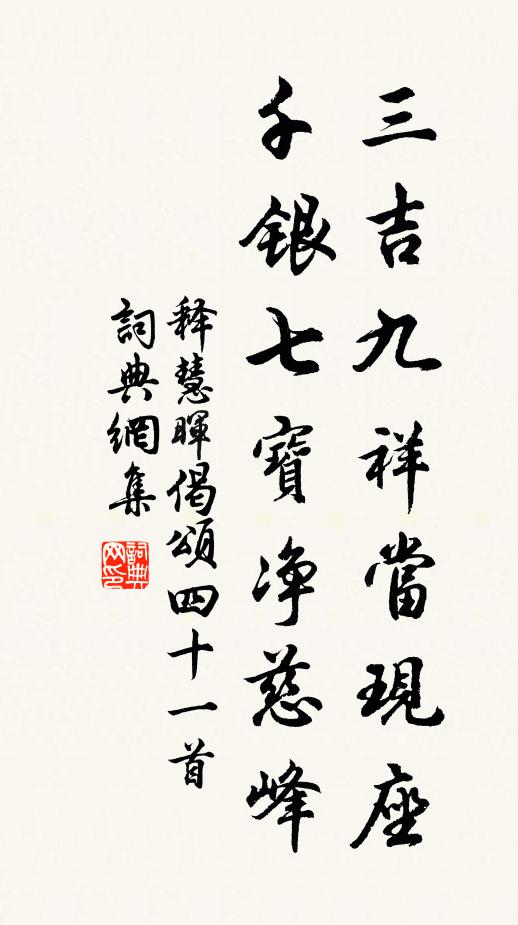 三吉九祥當現座
千銀七寶净慈峰
释慧暉偈頌四十一首
詞典網集
詞典网印